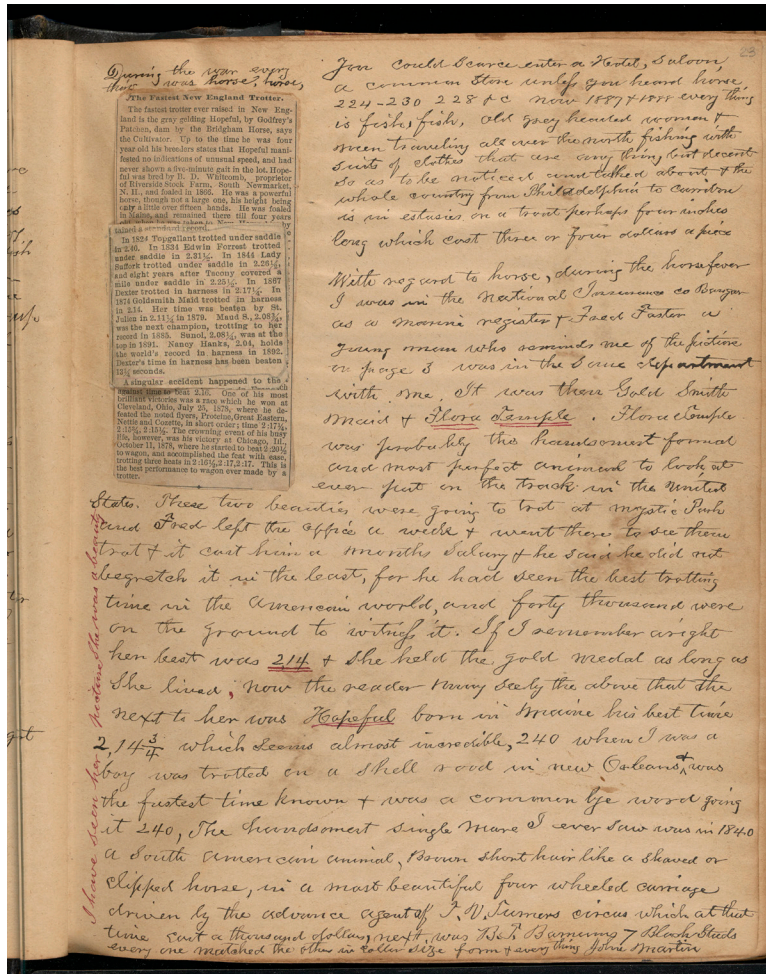 23
During the war every
thing was horse, horse,
The Fastest New England Trotter.
The fastest trotter ever raised in New Eng-
land is the gray gelding Hopeful, by Godfrey's
Patchen, dam by the Bridgham Horse, says
the Cultivator. Up to the time he was four
year old his breeders states that Hopeful mani-
fested no indications of unusual speed, and had
never shown a five-minute gait in the lot. Hope-
ful was bred by B. D. Whitcomb, proprietor
of Riverside Stock Farm, South Newmarket,
N. H., and foaled in 1866. He was a powerful
horse, though not a large one, his height being
only a little over fifteen hands. He was foaled
in Maine, and remained there till four years
In 1824 Topgallant trotted under saddle
in 2.46. In 1834 Edwin Forrest trotted
under saddle in 2.31½. In 1844 Lady
Suffolk trotted under saddle in 2.26½,
and eight years after Tacony covered a
mile under saddle in 2.25½. In 1867
Dexter trotted in harness in 2.17¼. In
1874 Goldsmith Maid trotted in harness
in 2.14. Her time was beaten by St.
Julien in 2.11¼ in 1879. Maud S., 2.08¾,
was the next champion, trotting to her
record in 1885. Sunol, 2.08¼, was at the
top in 1891. Nancy Hanks, 2.04, holds
the world's record in harness in 1892.
Dexter's time in harness has been beaten
13¼ seconds.
A singular accident happened to the
against time to beat 2.16. One of his most
brilliant victories was a race which he won at
Cleveland, Ohio, July 25, 1878, where he de-
feated the noted flyers, Proteine, Great Eastern,
Nettie and Cozette, in short order; time 2:17¼,
2:15¾, 2:15½. The crowning event of his busy
life, however, was his victory at Chicago, Ill.,
October 11, 1878, where he started to beat 2:20½
to wagon, and accomplished the feat with ease,
trotting three heats in 2:16½, 2:17, 2:17. This is
the best performance to wagon ever made by a
trotter.
You could scarce enter a Hotel, Saloon,
a common Store unless you heard horse
224-230 228 &c now 1887 & 1888 every thing
is fish, fish, old grey headed women &
men traveling all over the north fishing with
suits of clothes that are any thing but decent
so as to be noticed and talked about, & the
whole country from Philadelphia to
is in estacies on a trout perhaps four inches
long which cost three or four dollars a piece
With regard to horse, during the horse fever
I was in the National Insurance co Bangor
as a marine register & Fred Foster a
young man who reminds me of the picture
on page 3 was in the same department
with me. It was then Gold Smith
maid & Flora Temple. Flora Temple
was probably the handsomest formed
and most perfect animal to look at
ever put on the track in the United
States. These two beauties were going to trot at mystic Park
and Fred left the office a week & went there to see them
trot & it cost him a months Salary & he said he did not
begretch it in the least, for he had seen the best trotting
time in the american world, and forty thousand were
on the ground to witness it. If I remember aright
her best was 2,14 & she held the gold medal as long as
she lived, now the reader may see by the above that the
next to her was Hopeful born in Maine his best time
2,14 3/4 which seems almost incredible, 240 when I was a
boy was trotted on a shell road in new Orleans & was
the fastest time known & was a common bye word going
it 240, The handsomest single mare I ever saw was in 1840
a South american animal, Brown short hair like a shaved or
clipped horse, in a most beautiful four wheeled carriage
driven by the advance agent of T. V. Turners circus which at that
time cost a thousand dollars, next was B. T. Barnums 7 Black Studs
every one matched the other in collar size form & every thing John Martin
I have seen her picture She was a beauty